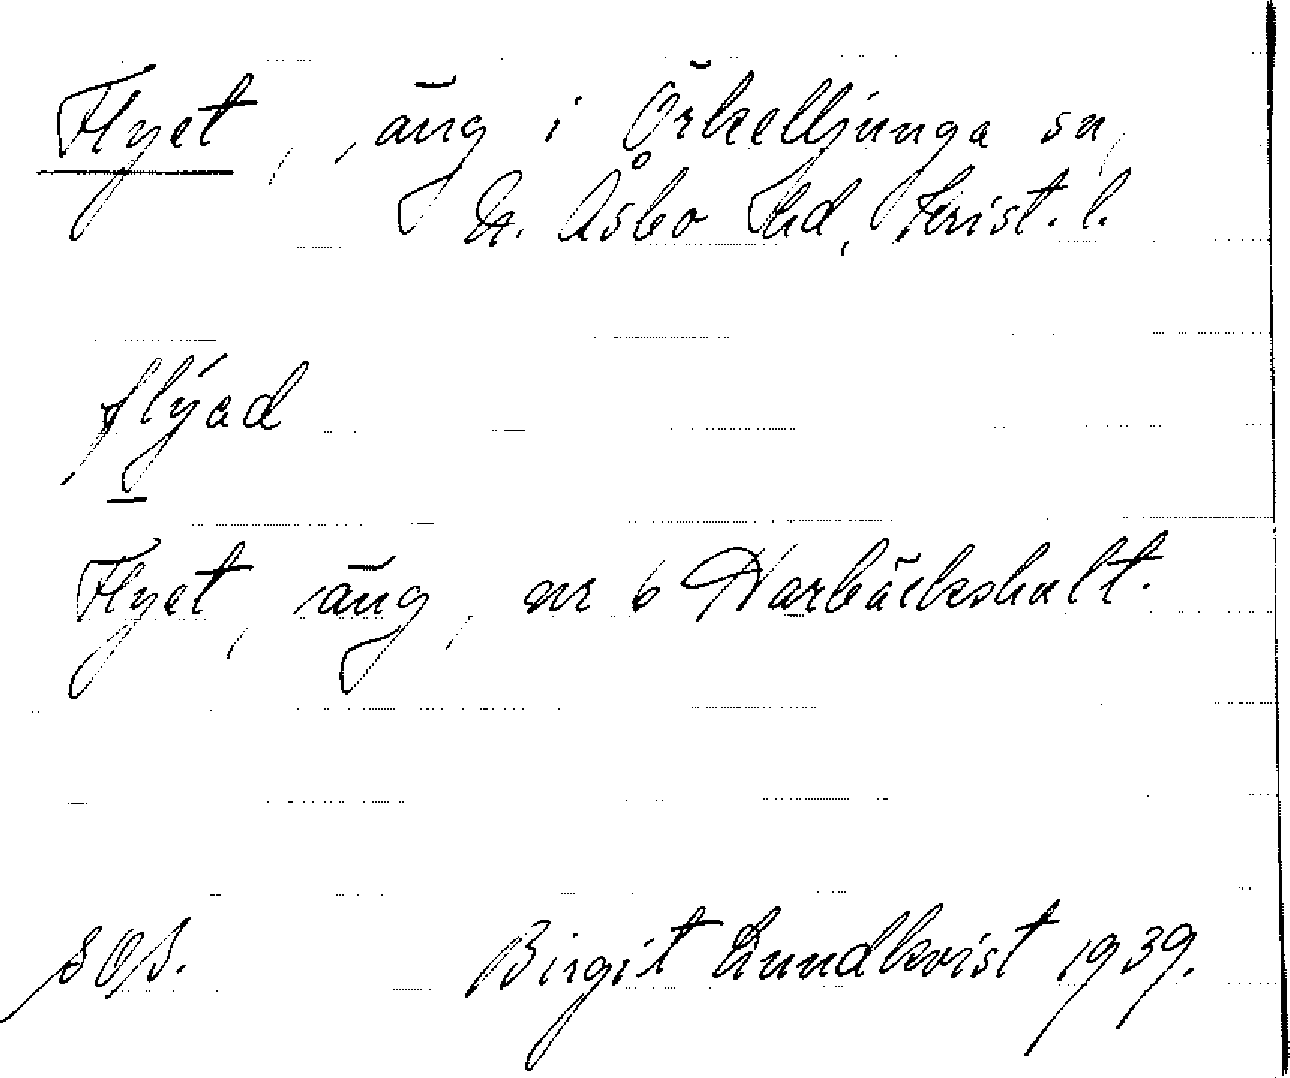 Flyet, äng i Örkelljunga sn,
N. Åsbo hd, Krist. l.
flýad
Flyet, äng, nr 6 Harbäckshult.
SOS. Birgit Lundkvist 1939.